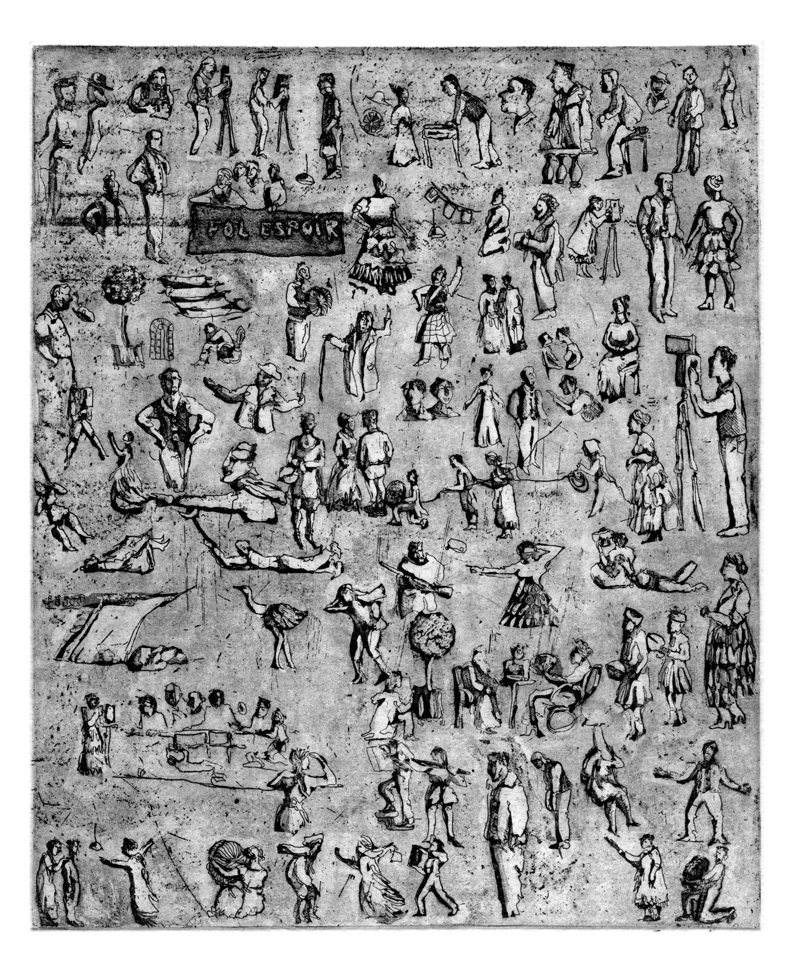 FOL ESPOIR